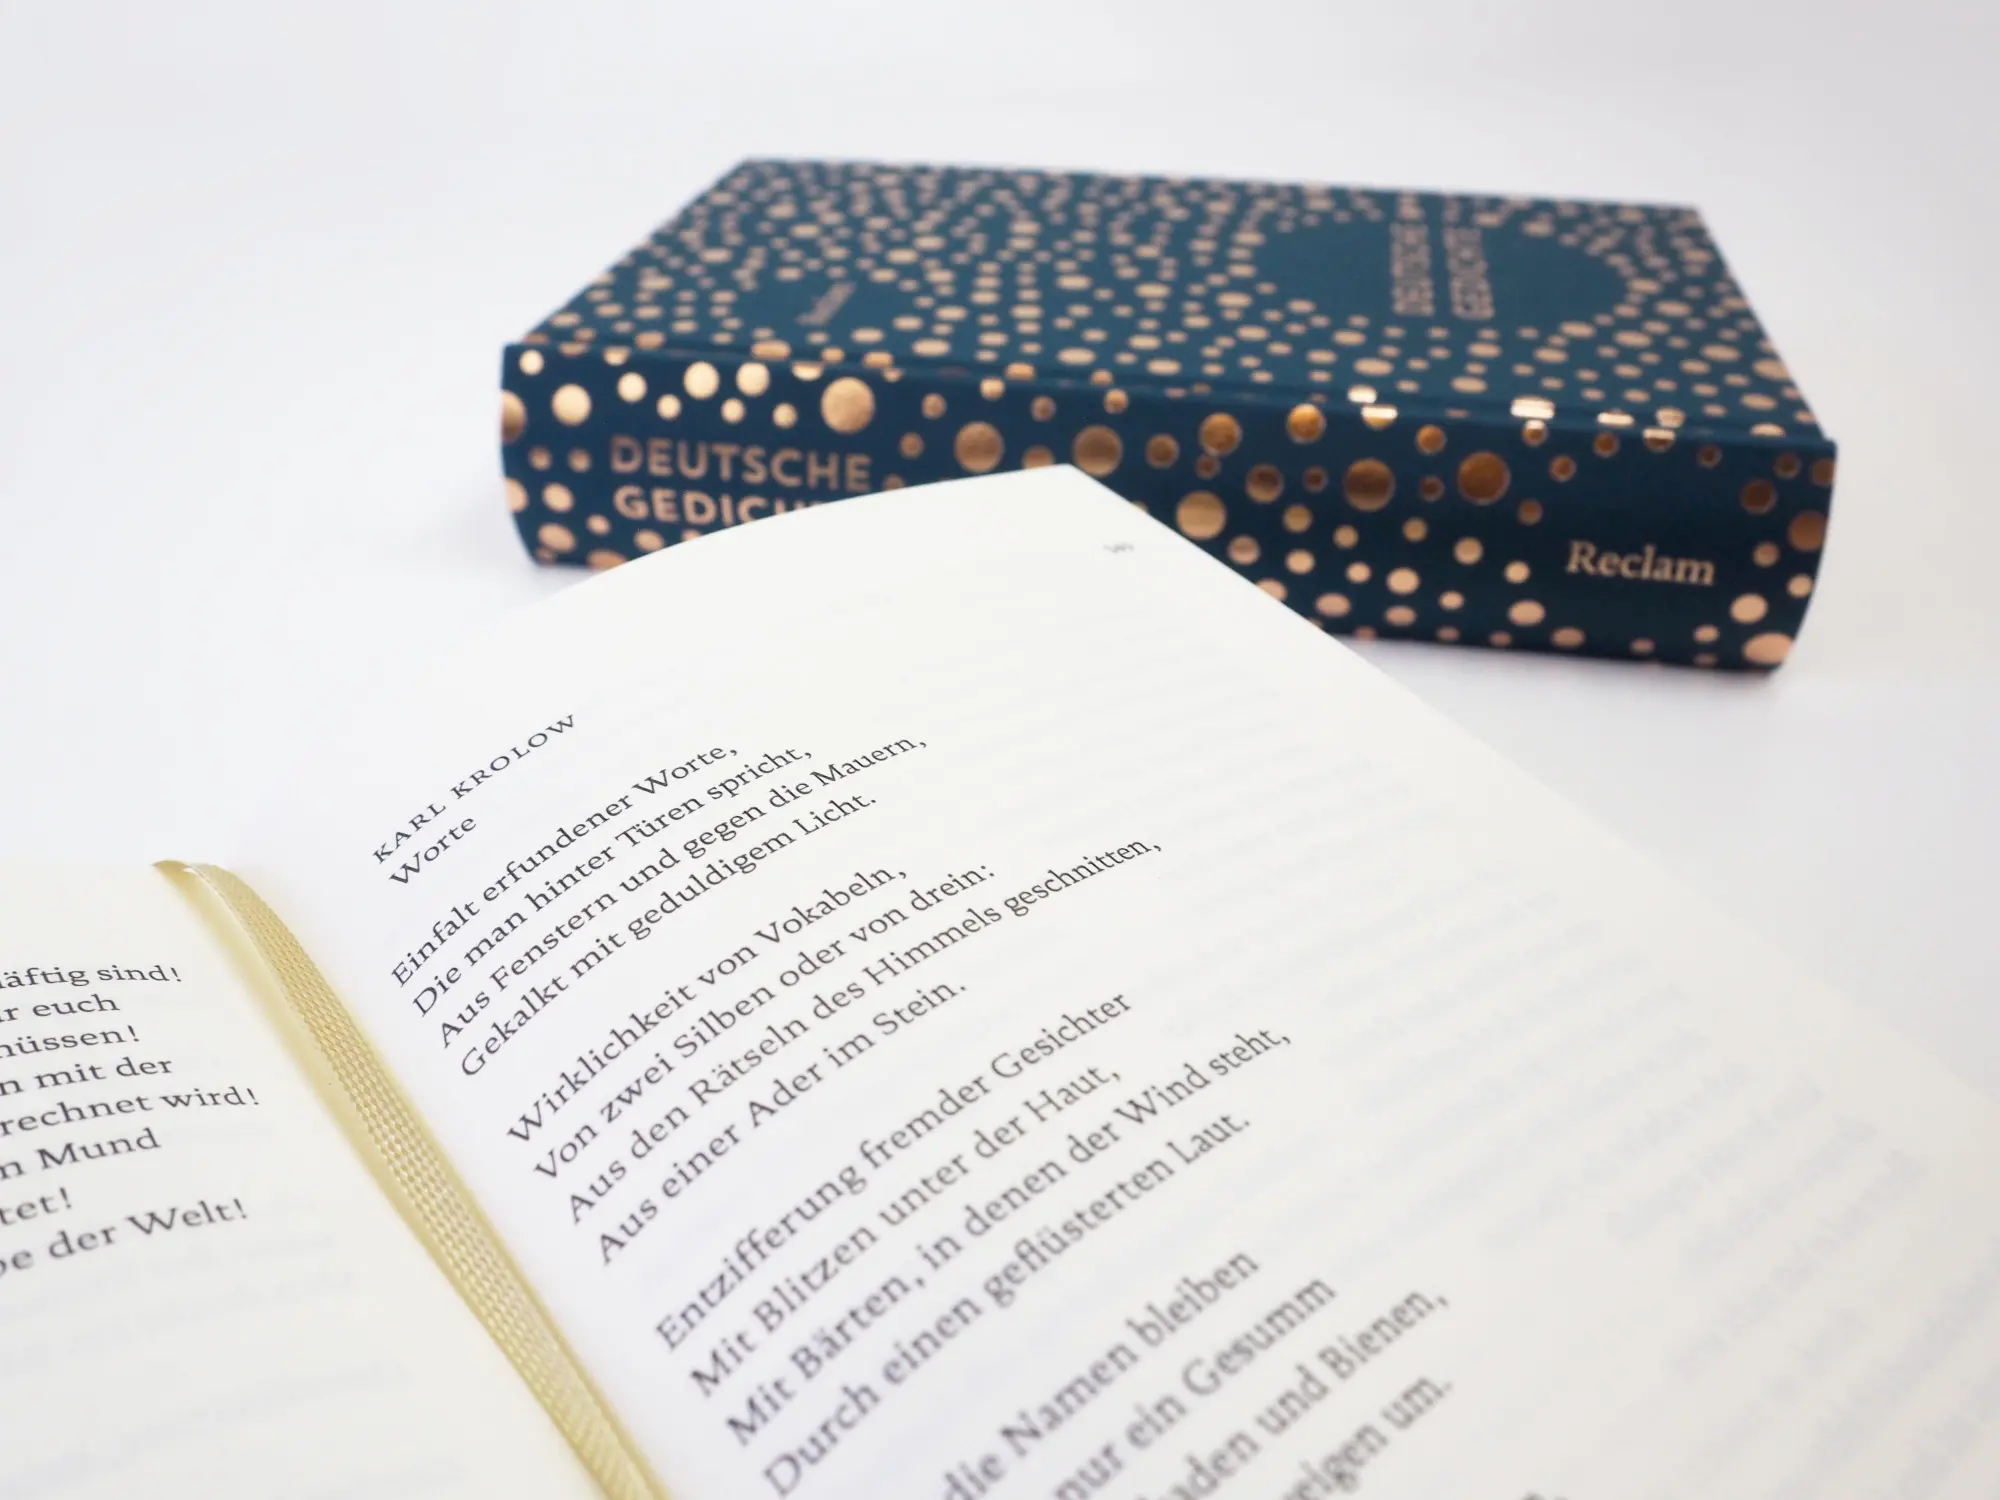 DEUTSCHE
GEDICHTE
DEUTSCHE
Reclam
häftig sind!
euch
müssen!
mit der
rechnet wird!
Mund
der Welt!
KARL KROLOW
Worte
Einfalt erfundener Worte,
Die man hinter Türen spricht,
Aus Fenstern und gegen die Mauern,
Gekalkt mit geduldigem Licht.
Wirklichkeit von Vokabeln,
Von zwei Silben oder von drein:
Aus den Rätseln des Himmels geschnitten,
Aus einer Ader im Stein.
Entzifferung fremder Gesichter
Mit Blitzen unter der Haut,
Mit Bärten, in denen der Wind steht,
Durch einen geflüsterten Laut.
die Namen bleiben
nur ein Gesumm
und Bienen,
um.